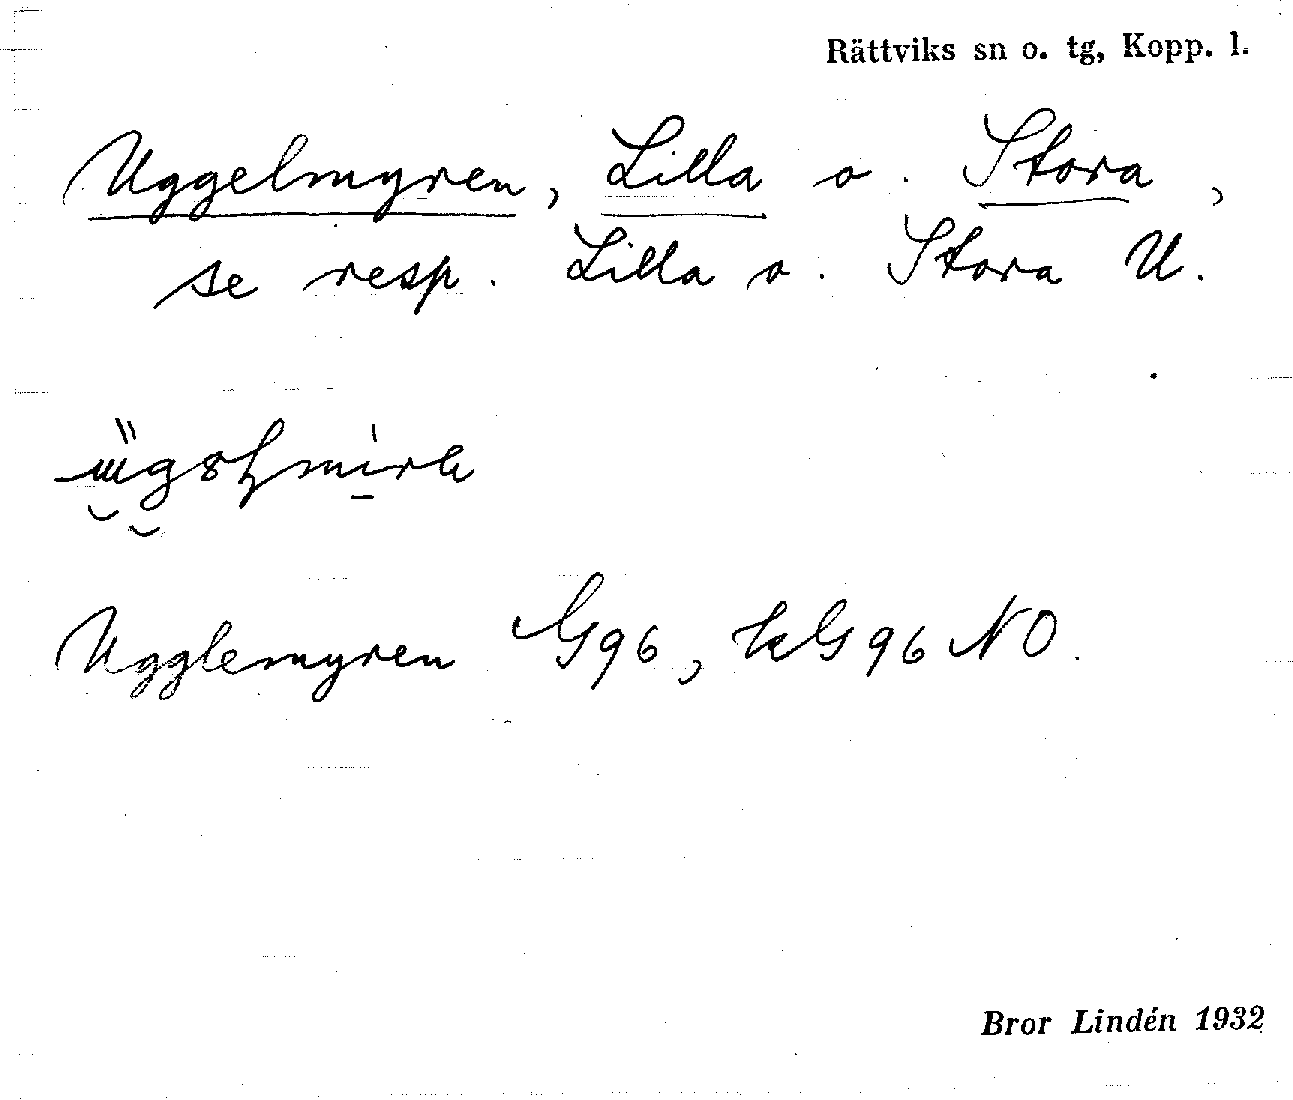 Rättviks sn o. tg, Kopp. l.
Uggelmyren, Lilla o. Stora,
se resp. Lilla o. Stora U.
Ugglemyren G96, kG96NO.
Bror Lindén 1932